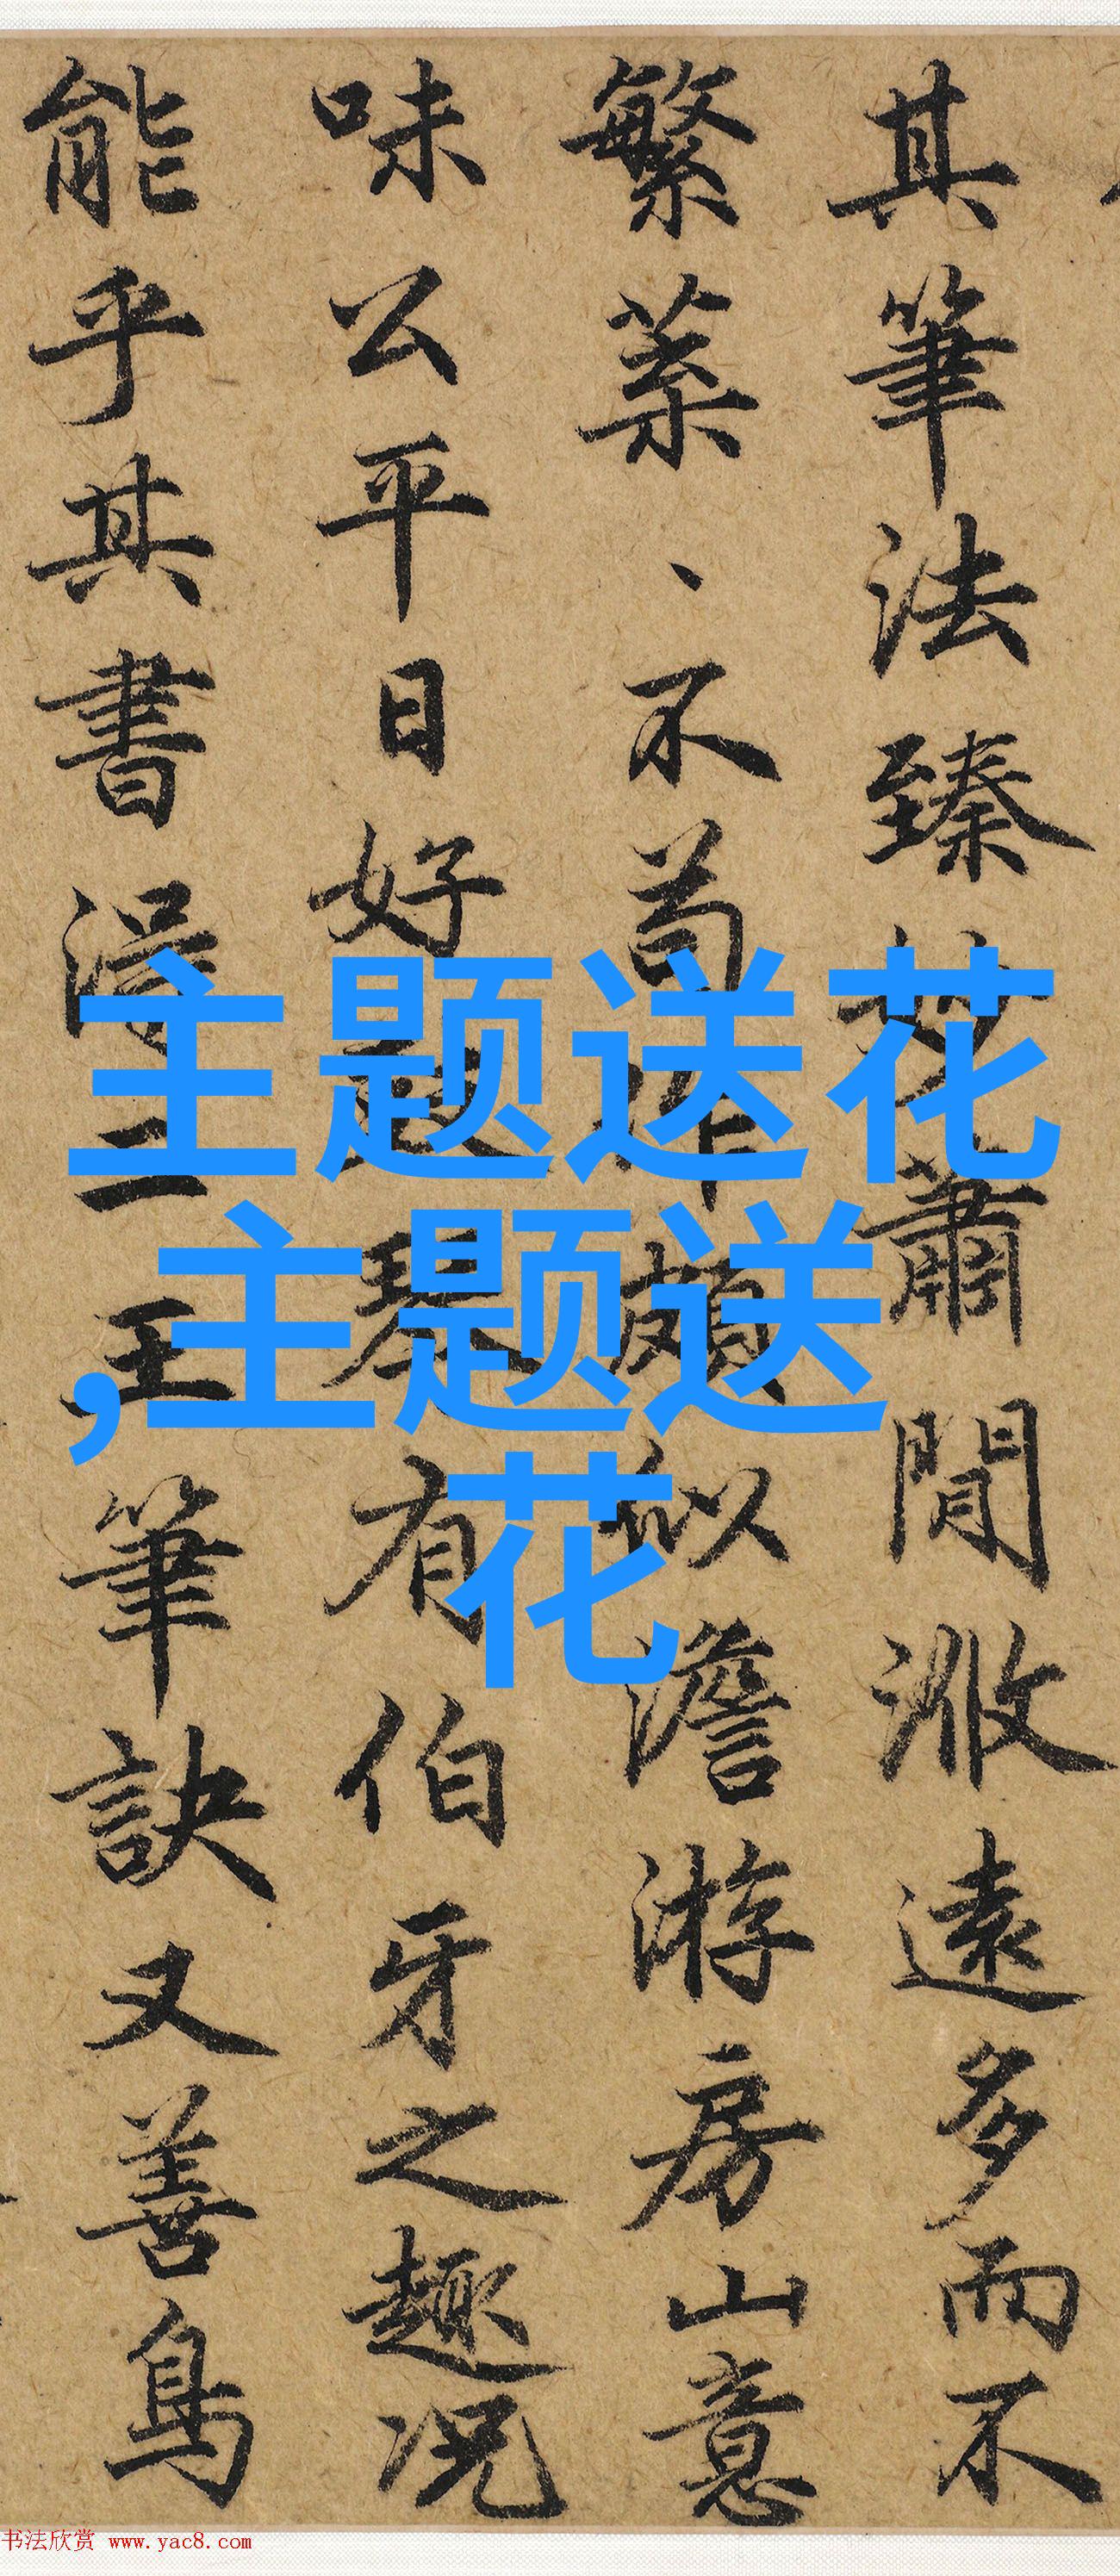 其筆法臻妙蕭閒澹遠多而不
繁菜、不苟作頗似澹游房山意
味公平日好鼓琴有伯牙之趣况
能乎其書得二王筆訣又善鳥
主题送花
,主题送
花
书法欣赏 www.yac8.com